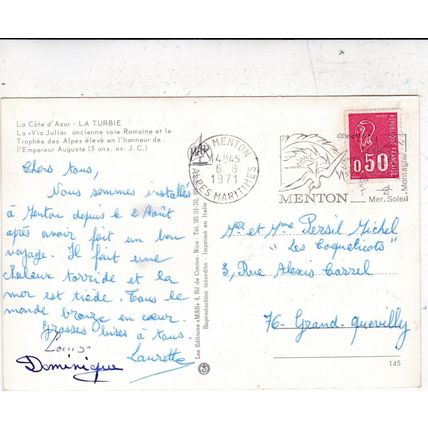 La Côte d'Azur - LA TURBIE
La «Via Julia» ancienne voie Romaine et le
Trophée des Alpes élevé en l'honneur de
l'Empereur Auguste (5 ans. av. J. C.)
Chers tous,
Nous sommes installés
à Menton depuis le 2 Août
après avoir fait un bon
voyage. Il fait une
chaleur torride et la
mer est tiède. Tous le
monde bronze en cœur.
Grosses bises à tous.
Laurette
Dominique
Les Editions «MAR»
Reproduction interdite - Imprimé en Italie
MENTON
14H45
6-8
1971
ALPES MARITIMES
MENTON
Mer. Soleil
Montagne
REPUBLIQUE FRANÇAISE
0,50
Mr et Mme Persil Michel
"Les Coquelicots"
3, Rue Alexis Carrel
76-Grand-Quevilly
145